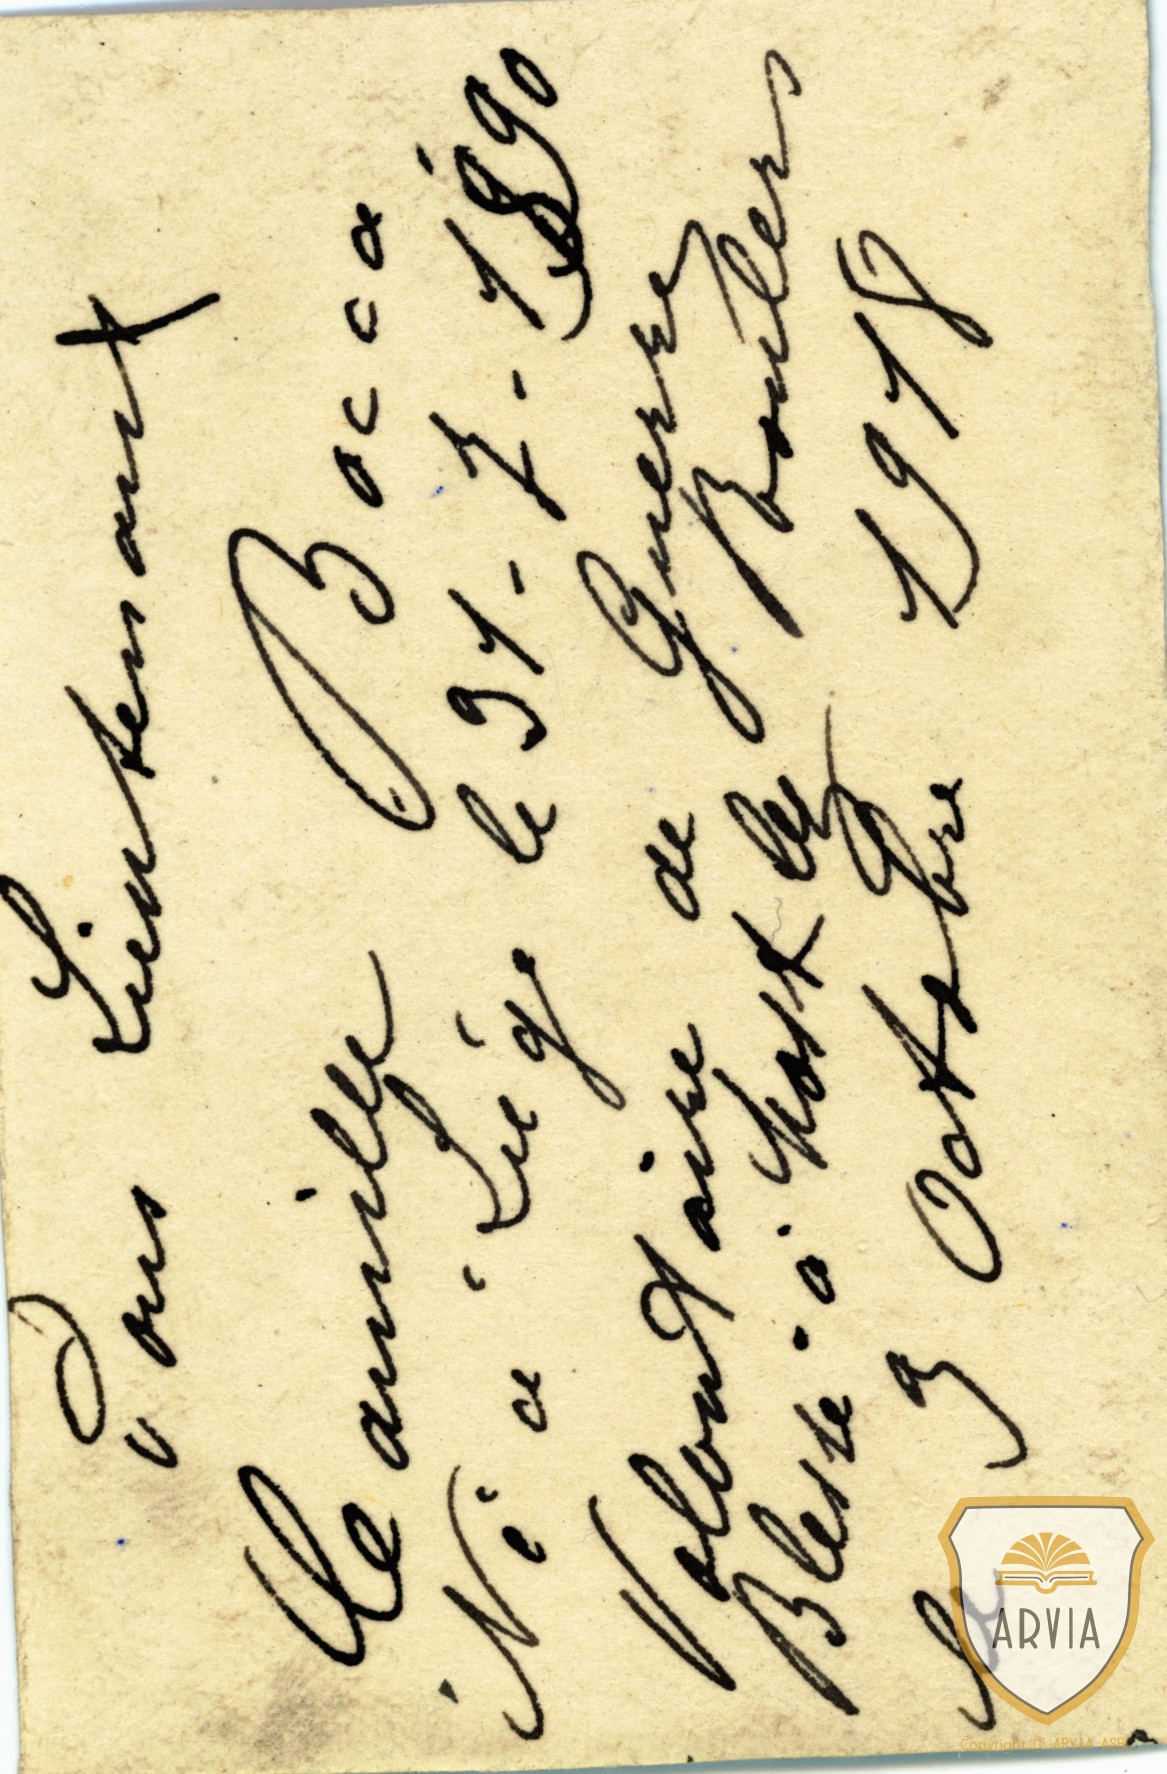 Sous Lieutenant
Camille Bocca
Né a Liége le 31-7-1890
Volontaire de Guerre
Blessé à les Roulers
Le 3 Octobre 1918
ARVIA
Copyright © ARVIA ASBL